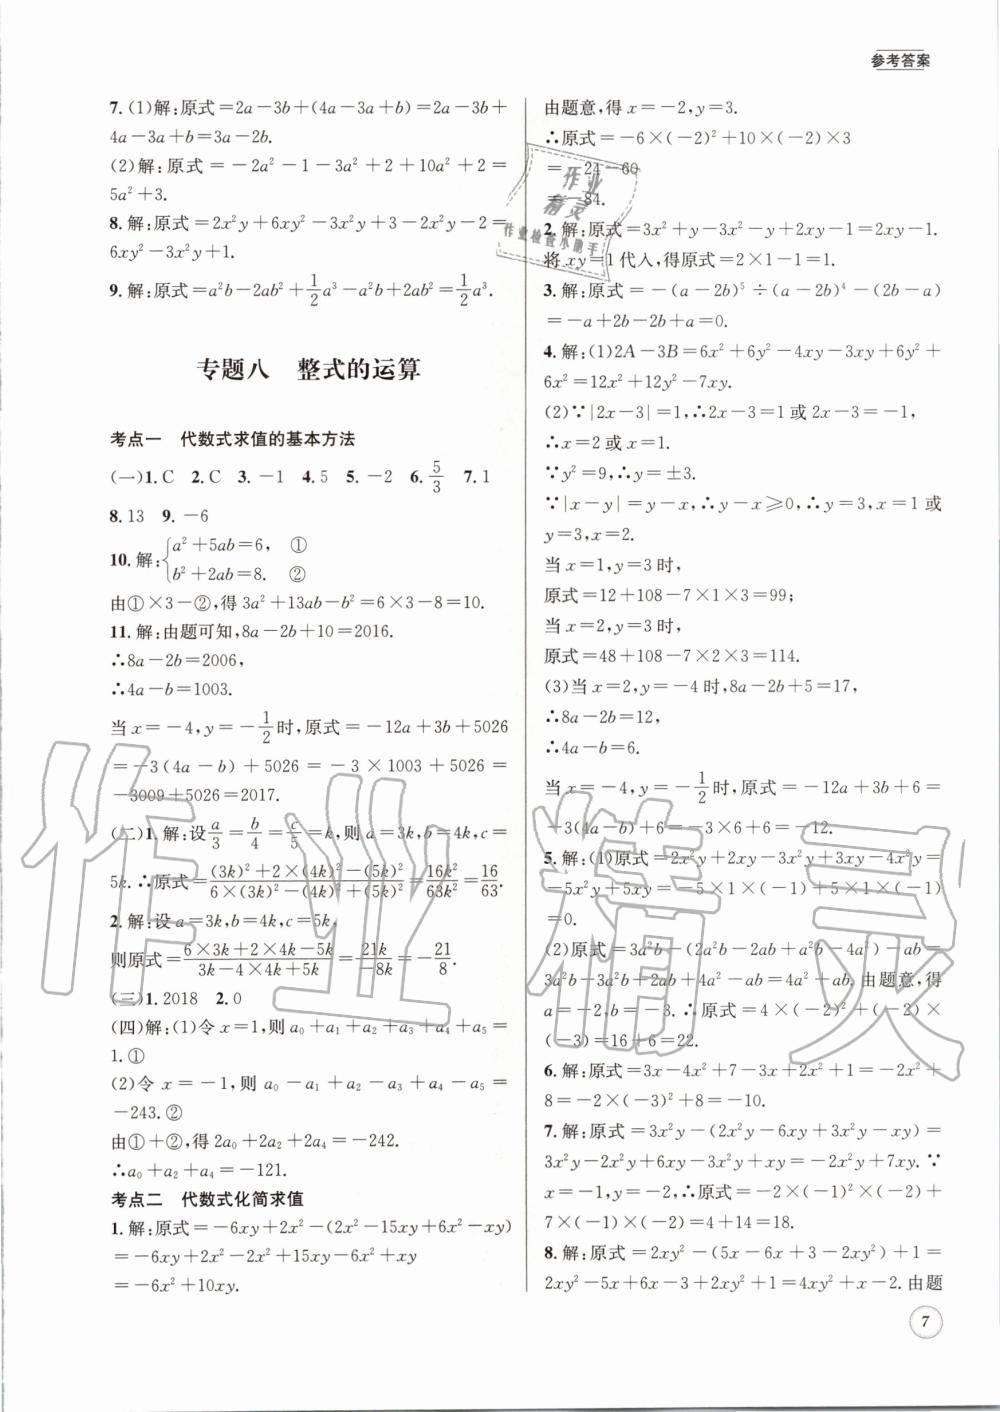 参考答案
7.(1)解:原式=2a-3b+(4a-3a+b)=2a-3b+
4a-3a+b=3a-2b.
(2)解:原式=-2a²-1-3a²+2+10a²+2=
5a²+3.
8.解:原式=2x²y+6xy²-3x²y+3-2x²y-2=
6xy²-3x²y+1.
9.解:原式=a²b-2ab²+1/2a³-a²b+2ab²=1/2a³.
专题八 整式的运算
考点一 代数式求值的基本方法
(一)1.C 2.C 3.-1 4.5 5.-2 6.5/3 7.1
8.13 9.-6
10.解:{a²+5ab=6, ①
b²+2ab=8. ②
由①×3-②,得3a²+13ab-b²=6×3-8=10.
11.解:由题可知,8a-2b+10=2016.
∴8a-2b=2006,
∴4a-b=1003.
当x=-4,y=-1/2时,原式=-12a+3b+5026
=-3(4a-b)+5026=-3×1003+5026=
-3009+5026=2017.
(二)1.解:设a/3=b/4=c/5=k,则a=3k,b=4k,c=
5k.∴原式=(3k)²+2×(4k)²-(5k)²/6×(3k)²-(4k)²+(5k)²=16k²/63k²=16/63.
2.解:设a=3k,b=4k,c=5k,
则原式=6×3k+2×4k-5k/3k-4×4k+5k=21k/-8k=-21/8.
(三)1.2018 2.0
(四)解:(1)令x=1,则a₀+a₁+a₂+a₃+a₄+a₅=
1.①
(2)令x=-1,则a₀-a₁+a₂-a₃+a₄-a₅=
-243.②
由①+②,得2a₀+2a₂+2a₄=-242.
∴a₀+a₂+a₄=-121.
考点二 代数式化简求值
1.解:原式=-6xy+2x²-(2x²-15xy+6x²-xy)
=-6xy+2x²-2x²+15xy-6x²+xy
=-6x²+10xy.
由题意,得x=-2,y=3.
∴原式=-6×(-2)²+10×(-2)×3
=-24-60
=-84.
2.解:原式=3x²+y-3x²-y+2xy-1=2xy-1.
将xy=1代入,得原式=2×1-1=1.
3.解:原式=-(a-2b)⁵÷(a-2b)⁴-(2b-a)
=-a+2b-2b+a=0.
4.解:(1)2A-3B=6x²+6y²-4xy-3xy+6y²+
6x²=12x²+12y²-7xy.
(2)∵|2x-3|=1,∴2x-3=1或2x-3=-1,
∴x=2或x=1.
∵y²=9,∴y=±3.
∵|x-y|=y-x,∴y-x≥0,∴y=3,x=1或
y=3,x=2.
当x=1,y=3时,
原式=12+108-7×1×3=99;
当x=2,y=3时,
原式=48+108-7×2×3=114.
(3)当x=2,y=-4时,8a-2b+5=17,
∴8a-2b=12,
∴4a-b=6.
当x=-4,y=-1/2时,原式=-12a+3b+6=
-3(4a-b)+6=-3×6+6=-12.
5.解:(1)原式=2x²y+2xy-3x²y+3xy-4x²y=
-5x²y+5xy=-5×1×(-1)+5×1×(-1)
=0.
(2)原式=3a²b-(2a²b-2ab+a²b-4a²)-ab=
3a²b-3a²b+2ab+4a²-ab=4a²+ab.由题意,得
a=-2,b=-3.∴原式=4×(-2)²+(-2)×
(-3)=16+6=22.
6.解:原式=3x-4x²+7-3x+2x²+1=-2x²+
8=-2×(-3)²+8=-10.
7.解:原式=3x²y-(2x²y-6xy+3x²y-xy)=
3x²y-2x²y+6xy-3x²y+xy=-2x²y+7xy.∵
x=-1,y=-2,∴原式=-2×(-1)²×(-2)+
7×(-1)×(-2)=4+14=18.
8.解:原式=2xy²-(5x-6x+3-2xy²)+1=
2xy²-5x+6x-3+2xy²+1=4xy²+x-2.由题
7
作业精灵
作业检查小助手
作业精灵